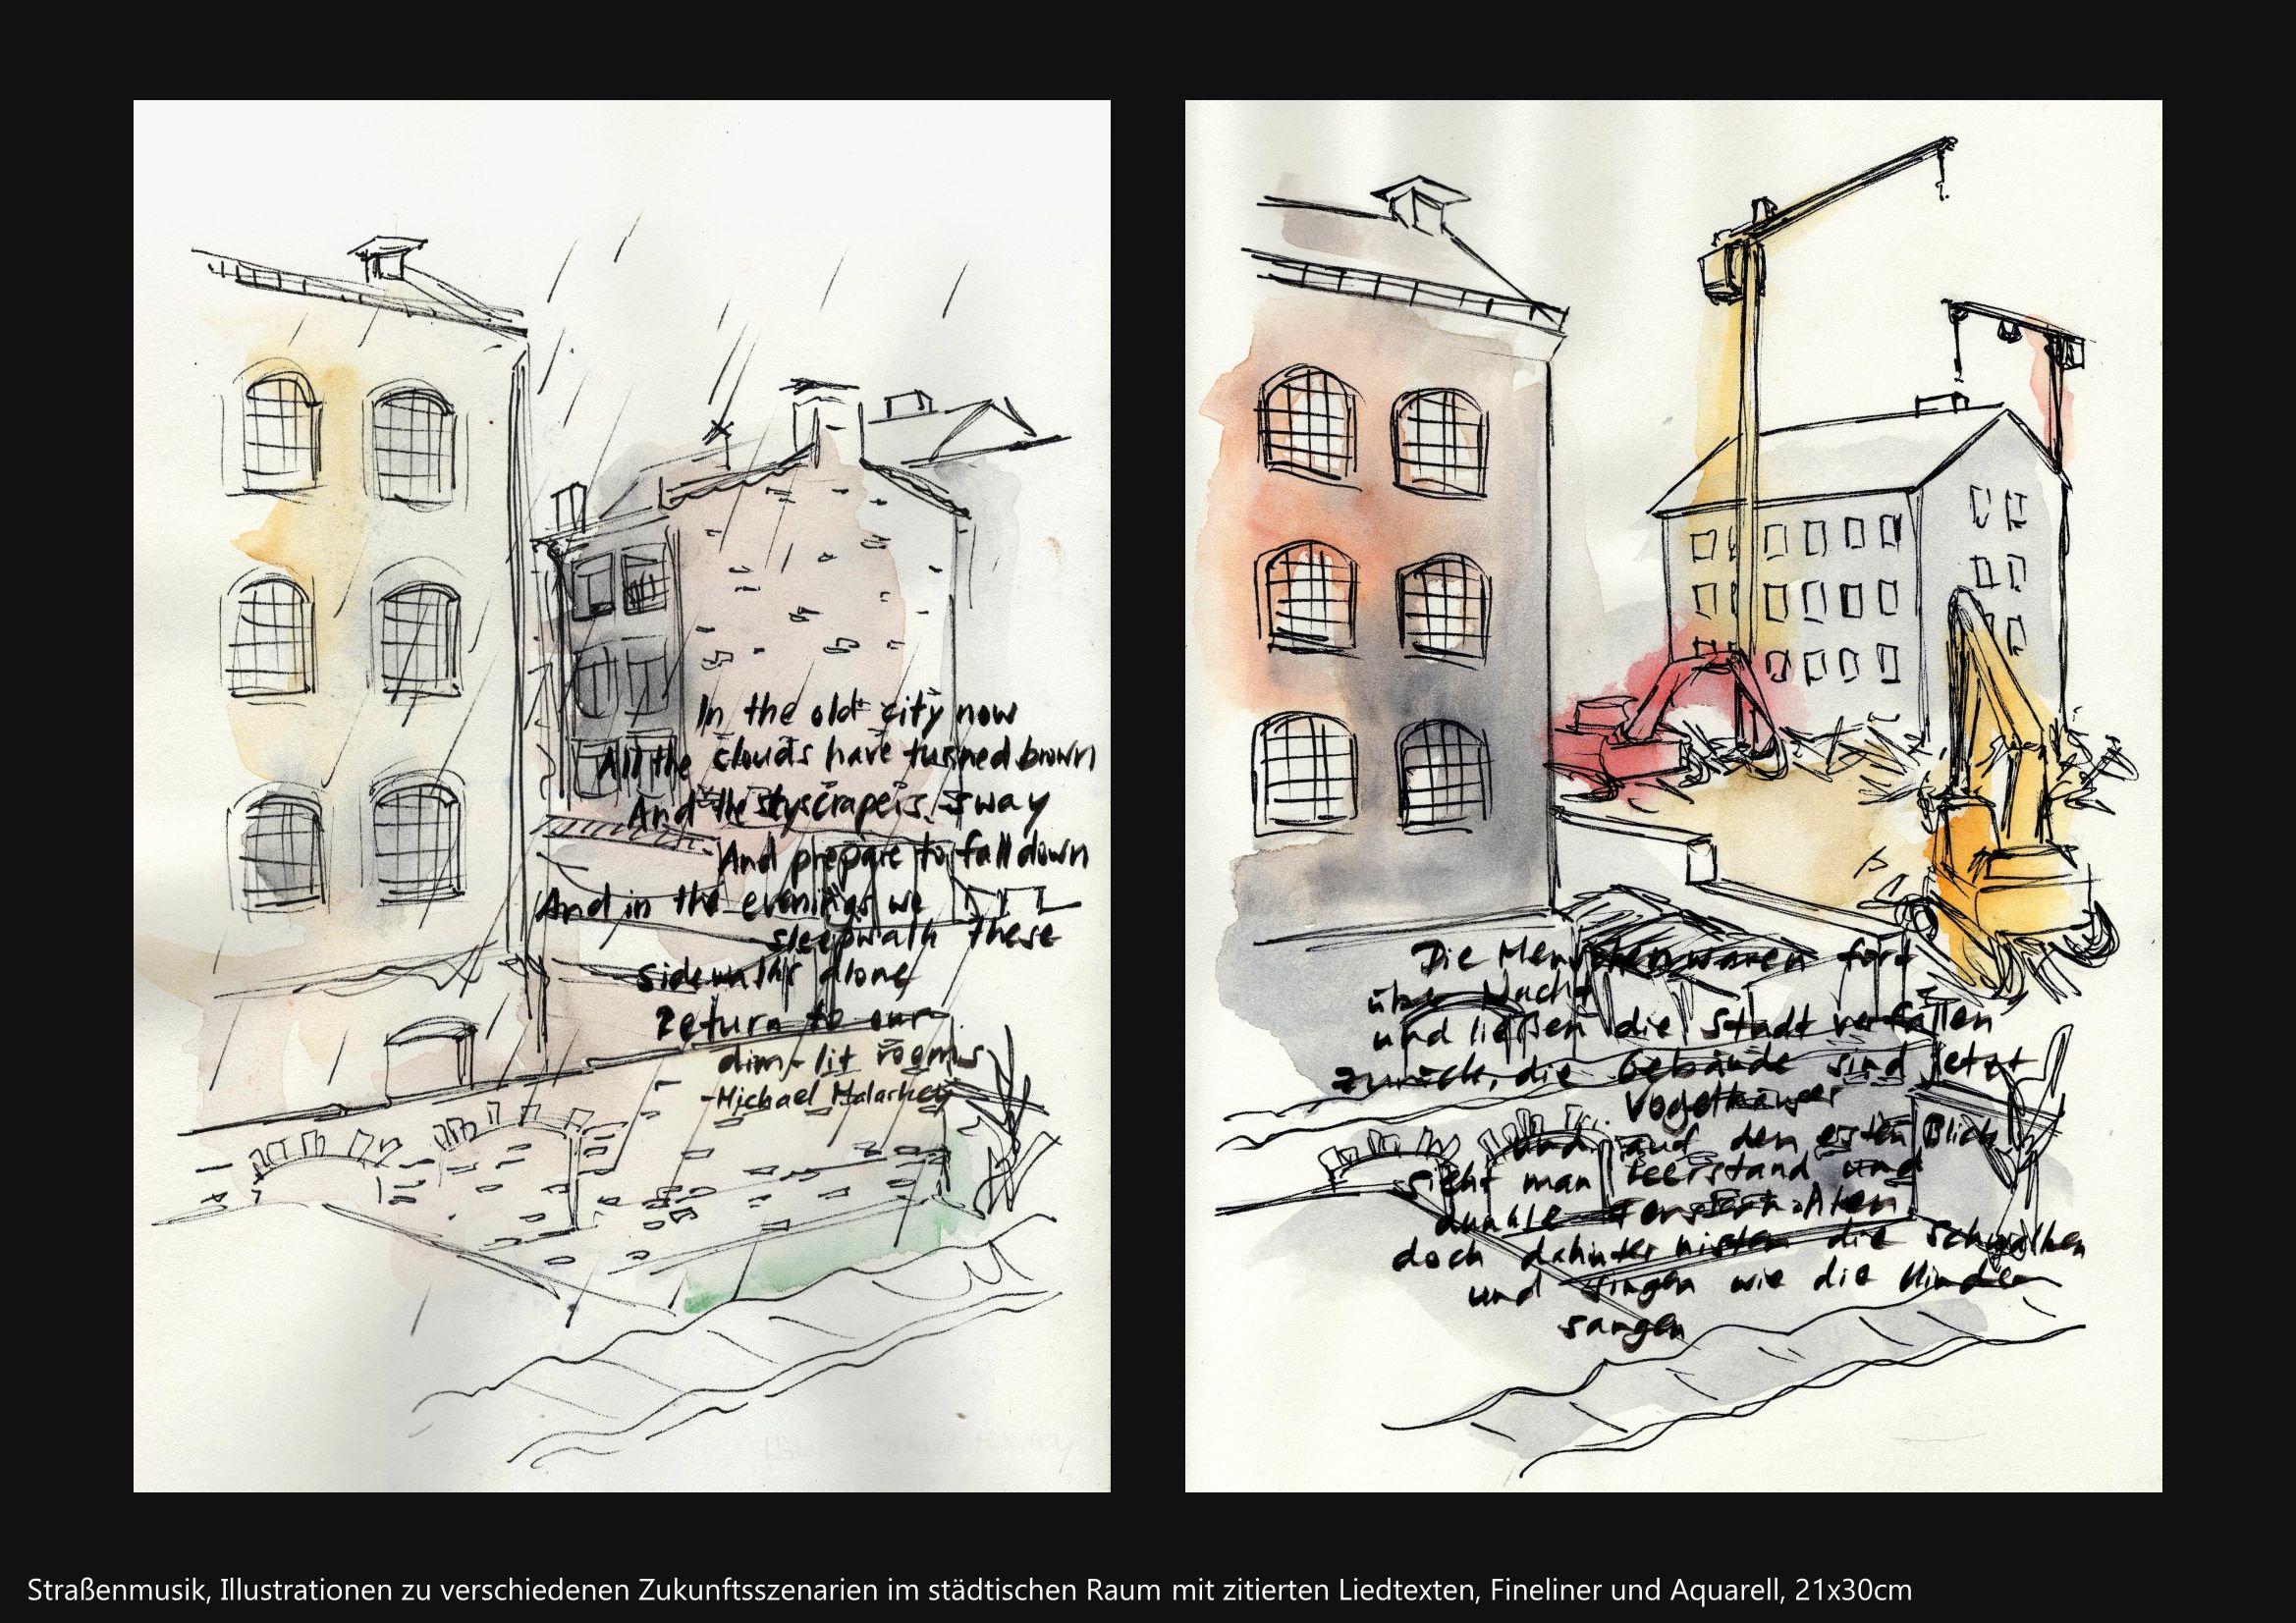 In the old city now
All the clouds have turned brown
And the skyscrapers sway
And prepare to fall down
And in the evenings we
sleepwalk these
sidewalks alone
Return to our
dim-lit rooms
-Michael Malarkey
Die Menschen waren fort
über Nacht
und ließen die Stadt verfallen
zurück, die Gebäude sind jetzt
Vogelhäuser
und auf den ersten Blick
sieht man Leerstand und
dunkle
doch dahinter nisten die Schwalben
und singen wie die Kinder
sangen
Straßenmusik, Illustrationen zu verschiedenen Zukunftsszenarien im städtischen Raum mit zitierten Liedtexten, Fineliner und Aquarell, 21x30cm